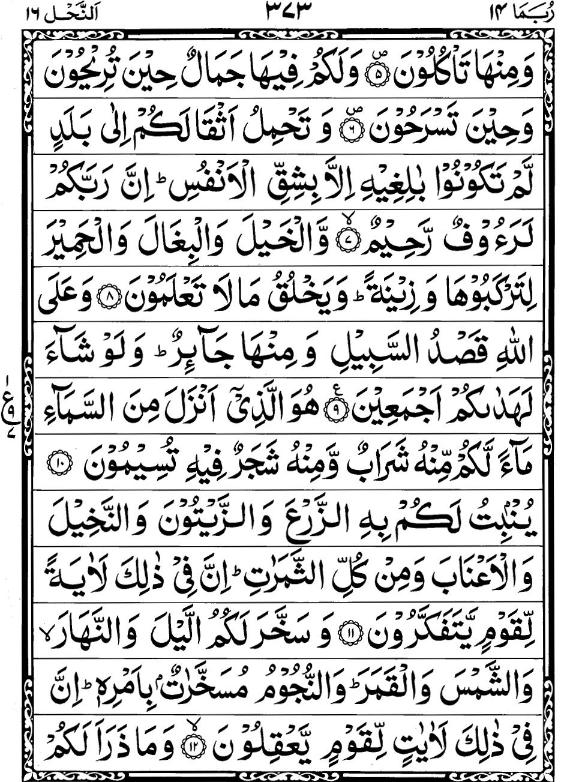 رُبَمَا ۱۴ ۳۷۳ اَلنَّحْل ۱۶
وَمِنْهَا تَاْكُلُوْنَ ۪﴿۵﴾ وَلَكُمْ فِيْهَا جَمَالٌ حِيْنَ تُرِيْحُوْنَ
وَحِيْنَ تَسْرَحُوْنَ ۪﴿۶﴾ وَ تَحْمِلُ اَثْقَالَكُمْ اِلٰى بَلَدٍ
لَّمْ تَكُوْنُوْا بٰلِغِيْهِ اِلَّا بِشِقِّ الْاَنْفُسِ ؕ اِنَّ رَبَّكُمْ
لَرَءُوْفٌ رَّحِيْمٌ ۙ﴿۷﴾ وَّالْخَيْلَ وَالْبِغَالَ وَالْحَمِيْرَ
لِتَرْكَبُوْهَا وَ زِيْنَةً ؕ وَيَخْلُقُ مَا لَا تَعْلَمُوْنَ ﴿۸﴾ وَعَلَى
اللّٰهِ قَصْدُ السَّبِيْلِ وَ مِنْهَا جَآئِرٌ ؕ وَ لَوْ شَآءَ
لَهَدٰىكُمْ اَجْمَعِيْنَ ﴿۹﴾ ع هُوَ الَّذِيْۤ اَنْزَلَ مِنَ السَّمَآءِ
مَآءً لَّكُمْ مِّنْهُ شَرَابٌ وَّمِنْهُ شَجَرٌ فِيْهِ تُسِيْمُوْنَ ﴿۱۰﴾
يُنْۢبِتُ لَكُمْ بِهِ الزَّرْعَ وَالزَّيْتُوْنَ وَالنَّخِيْلَ
وَالْاَعْنَابَ وَمِنْ كُلِّ الثَّمَرٰتِ ؕ اِنَّ فِيْ ذٰلِكَ لَاٰيَةً
لِّقَوْمٍ يَّتَفَكَّرُوْنَ ﴿۱۱﴾ وَ سَخَّرَ لَكُمُ الَّيْلَ وَالنَّهَارَ ۙ
وَالشَّمْسَ وَالْقَمَرَ ؕ وَالنُّجُوْمُ مُسَخَّرٰتٌۢ بِاَمْرِهٖ ؕ اِنَّ
فِيْ ذٰلِكَ لَاٰيٰتٍ لِّقَوْمٍ يَّعْقِلُوْنَ ۙ﴿۱۲﴾ وَمَا ذَرَاَ لَكُمْ
۱
ع
۹
۷